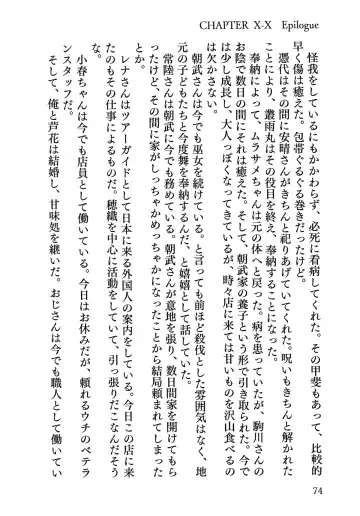 CHAPTER X-X　Epilogue
怪我をしているにもかかわらず、必死に看病してくれた。その甲斐もあって、比較的
早く傷は癒えた。包帯ぐるぐる巻きだったけど。
憑代はその間に安晴さんがきちんと祀りあげていてくれた。呪いもきちんと解かれた
ことにより、叢雨丸はその役目を終え、奉納することになった。
奉納によって、ムラサメちゃんは元の体へと戻った。病を患っていたが、駒川さんの
お陰で数日の間にそれは癒えた。そして、朝武家の養子という形で引き取られた。今で
は少し成長し、大人っぽくなってきているが、時々店に来ては甘いものを沢山食べるの
は欠かさない。
朝武さんは今でも巫女を続けている。と言っても前ほど殺伐とした雰囲気はなく、地
元の子どもたちと今度舞を奉納するんだ、と嬉々として話していた。
常陸さんは朝武に今でも務めている。朝武さんが意地を張り、数日間家を開けてもら
ったけど、その間に家がしっちゃかめっちゃかになったことから結局頼まれてしまった
とか。
レナさんはツアーガイドとして日本に来る外国人の案内をしている。今日この店に来
たのもその仕事によるものだ。穂織を中心に活動をしていて、引っ張りだこなんだそう
な。
小春ちゃんは今でも店員として働いている。今日はお休みだが、頼れるウチのベテラ
ンスタッフだ。
そして、俺と芦花は結婚し、甘味処を継いだ。おじさんは今でも職人として働いてい
74